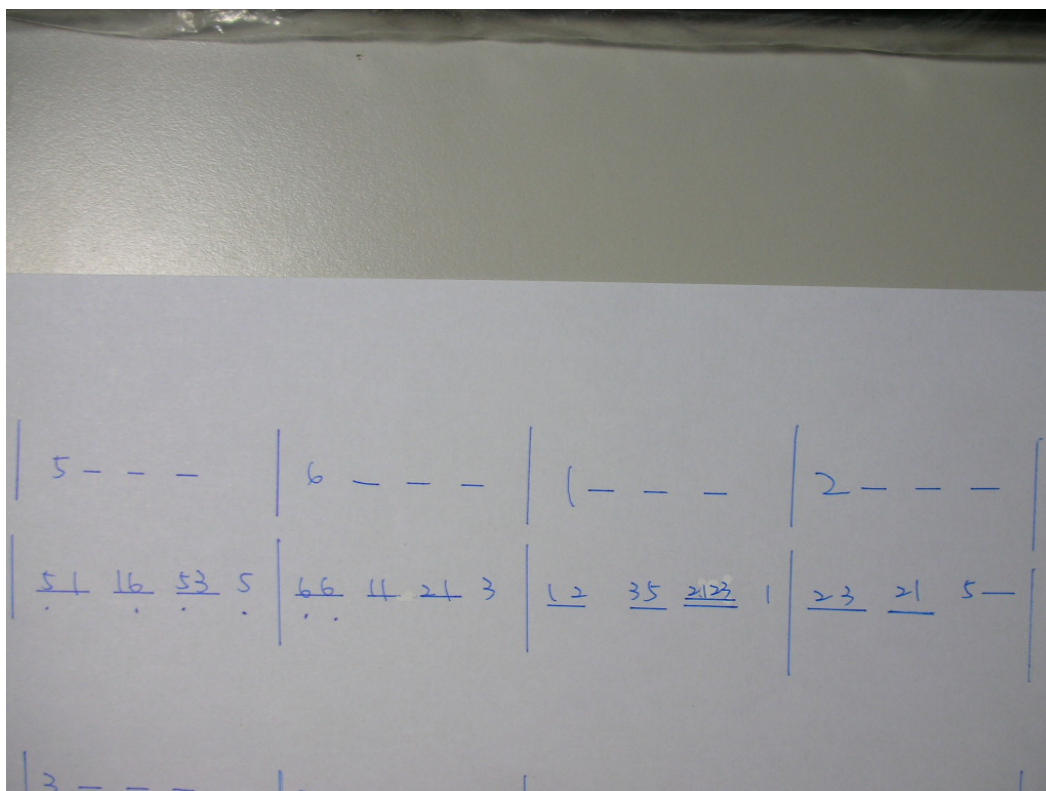 | 5 – – – | 6 – – – | 1 – – – | 2 – – – |
| 51 16 53 5 | 66 11 21 3 | 12 35 2123 1 | 23 21 5 – |
| 3 – – –